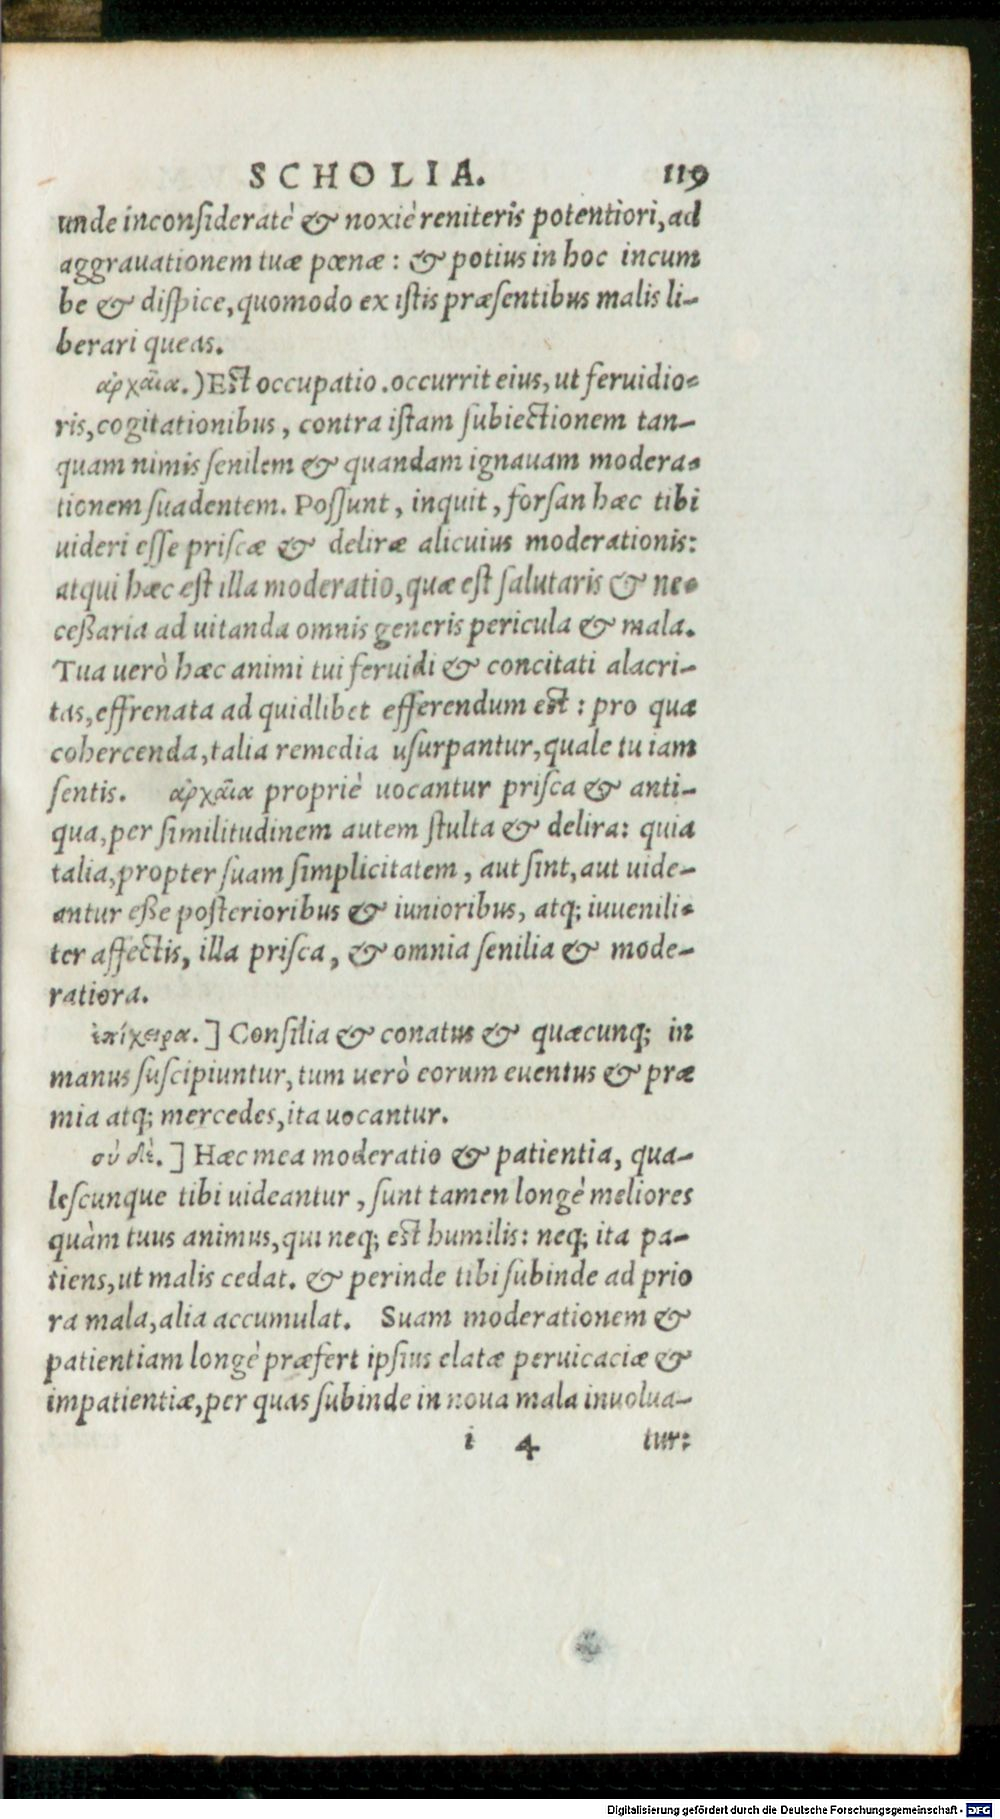 SCHOLIA. 119
unde inconsideratè & noxiè reniteris potentiori, ad
aggrauationem tuæ pœnæ: & potius in hoc incum
be & dispice, quomodo ex istis præsentibus malis li-
berari queas.
ἀρχαῖα.) Est occupatio. occurrit eius, ut feruidio-
ris, cogitationibus, contra istam subiectionem tan-
quam nimis senilem & quandam ignauam modera-
tionem suadentem. Possunt, inquit, forsan hæc tibi
uideri esse priscæ & deliræ alicuius moderationis:
atqui hæc est illa moderatio, quæ est salutaris & ne-
ceßaria ad uitanda omnis generis pericula & mala.
Tua uerò hæc animi tui feruidi & concitati alacri-
tas, effrenata ad quidlibet efferendum est: pro qua
cohercenda, talia remedia usurpantur, quale tu iam
sentis. ἀρχαῖα propriè uocantur prisca & anti-
qua, per similitudinem autem stulta & delira: quia
talia, propter suam simplicitatem, aut sint, aut uide-
antur eße posterioribus & iunioribus, atq; iuuenili-
ter affectis, illa prisca, & omnia senilia & mode-
ratiora.
ἐπίχειρα.] Consilia & conatus & quæcunq; in
manus suscipiuntur, tum uerò eorum euentus & præ
mia atq; mercedes, ita uocantur.
σὺ δὲ.] Hæc mea moderatio & patientia, qua-
lescunque tibi uideantur, sunt tamen longè meliores
quàm tuus animus, qui neq; est humilis: neq; ita pa-
tiens, ut malis cedat. & perinde tibi subinde ad prio
ra mala, alia accumulat. Suam moderationem &
patientiam longè præfert ipsius elatæ peruicaciæ &
impatientiæ, per quas subinde in noua mala inuolua-
i 4 tur:
Digitalisierung gefördert durch die Deutsche Forschungsgemeinschaft - DFG